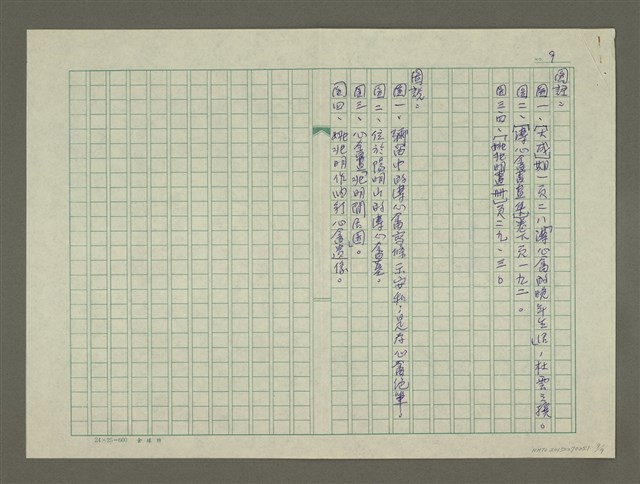 9
圖註：
圖一、〔大成〕期一頁二八「溥心畬的晚年生活」，杜雲之撰。
圖二、〔溥心畬書畫集〕卷下頁一九二。
圖三、四、〔姚兆明畫冊〕頁二九、三〇
圖說：
圖一、彌留中的溥心畬寫條示安和，是为心畬絕筆。
圖二、位於陽明山的溥心畬墓。
圖三、心畬畫「兆明閒居圖」。
圖四、姚兆明作的心畬畫像。
24×25=600